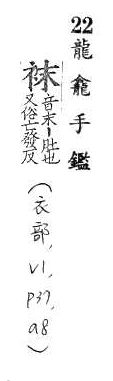 22 龍龕手鑑
袜 音末―肚也又俗亡發反
(衣部, V1, P37, a8)